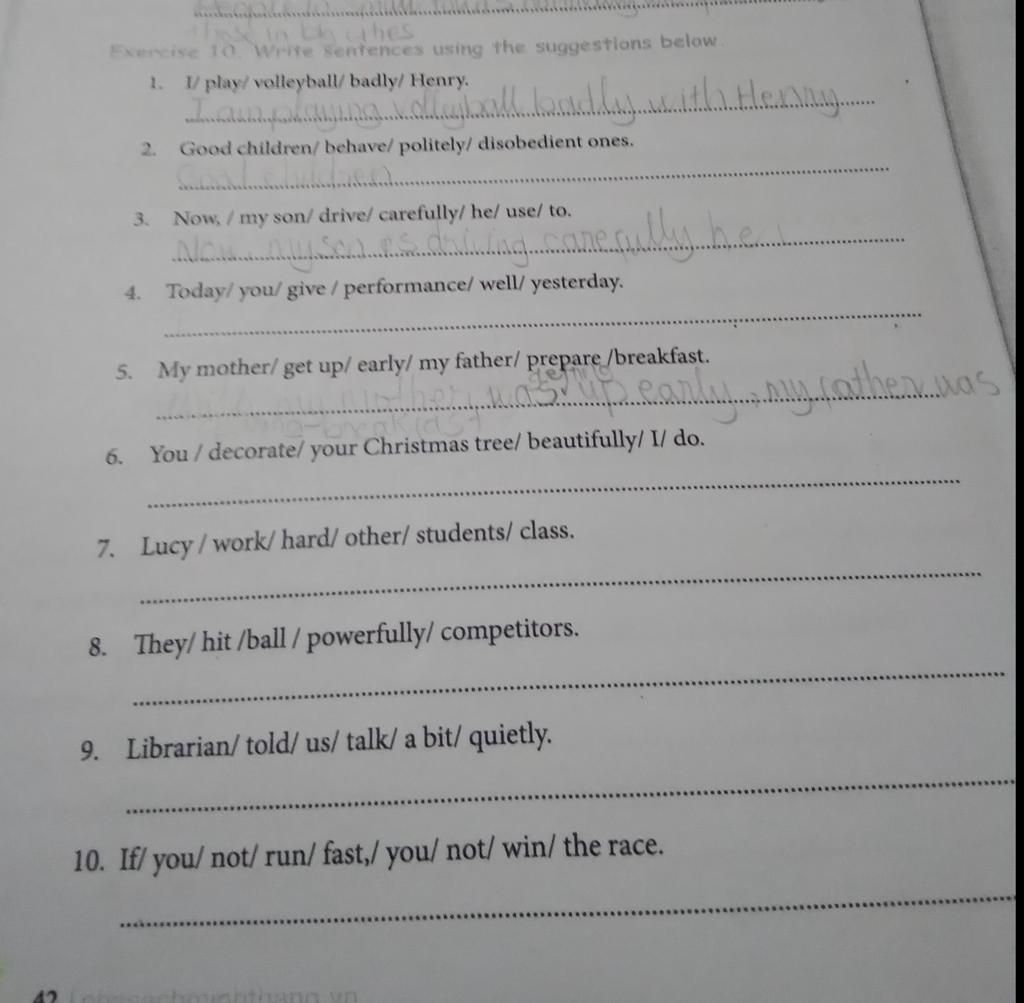 those in big cities
Exercise 10. Write sentences using the suggestions below.
1. I/ play/ volleyball/ badly/ Henry.
I am playing volleyball badly with Henry
2. Good children/ behave/ politely/ disobedient ones.
Good children
3. Now, / my son/ drive/ carefully/ he/ use/ to.
Now my son is driving carefully he
4. Today/ you/ give / performance/ well/ yesterday.
5. My mother/ get up/ early/ my father/ prepare /breakfast.
getting
my mother was up early, my father was
breakfast
6. You / decorate/ your Christmas tree/ beautifully/ I/ do.
7. Lucy / work/ hard/ other/ students/ class.
8. They/ hit /ball / powerfully/ competitors.
9. Librarian/ told/ us/ talk/ a bit/ quietly.
10. If/ you/ not/ run/ fast,/ you/ not/ win/ the race.
42